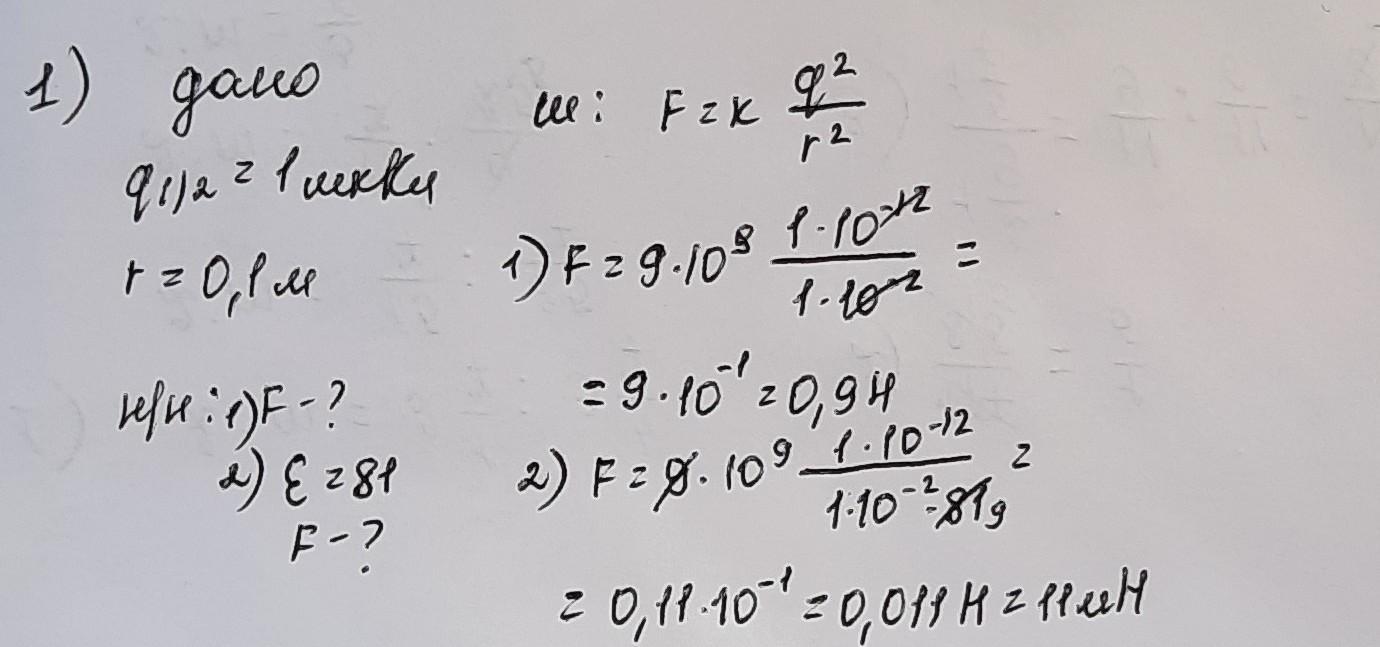 1) дано
q1,2 = 1 мкКл
r = 0,1 м
н/н: 1) F - ?
2) ε = 81
F - ?
ш: F = k q²/r²
1) F = 9·10⁹ (1·10⁻¹²)/(1·10⁻²) =
= 9·10⁻¹ = 0,9 Н
2) F = 9·10⁹ (1·10⁻¹²)/(1·10⁻²·81 9) =
= 0,11·10⁻¹ = 0,011 Н = 11 мН